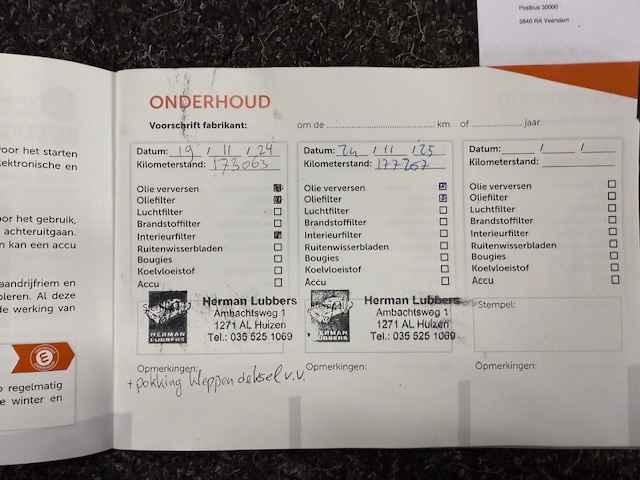 Postbus 30000
9640 RA Veendam
voor het starten
ektronische en
oor het gebruik,
achteruitgaan.
n kan een accu
aandrijfriem en
oleren. Al deze
de werking van
o regelmatig
e winter en
ONDERHOUD
Voorschrift fabrikant: om de km of jaar
Datum: 19 / 11 / 24
Kilometerstand: 173063
Olie verversen
Oliefilter
Luchtfilter
Brandstoffilter
Interieurfilter
Ruitenwisserbladen
Bougies
Koelvloeistof
Accu
HERMAN LUBBERS
Herman Lubbers
Ambachtsweg 1
1271 AL Huizen
Tel.: 035 525 1069
Opmerkingen:
+ pakking kleppen deksel v.v.
Datum: 24 / 11 / 25
Kilometerstand: 177267
Olie verversen
Oliefilter
Luchtfilter
Brandstoffilter
Interieurfilter
Ruitenwisserbladen
Bougies
Koelvloeistof
Accu
HERMAN LUBBERS
Herman Lubbers
Ambachtsweg 1
1271 AL Huizen
Tel.: 035 525 1069
Opmerkingen:
Datum: / /
Kilometerstand:
Olie verversen
Oliefilter
Luchtfilter
Brandstoffilter
Interieurfilter
Ruitenwisserbladen
Bougies
Koelvloeistof
Accu
Stempel:
Opmerkingen: